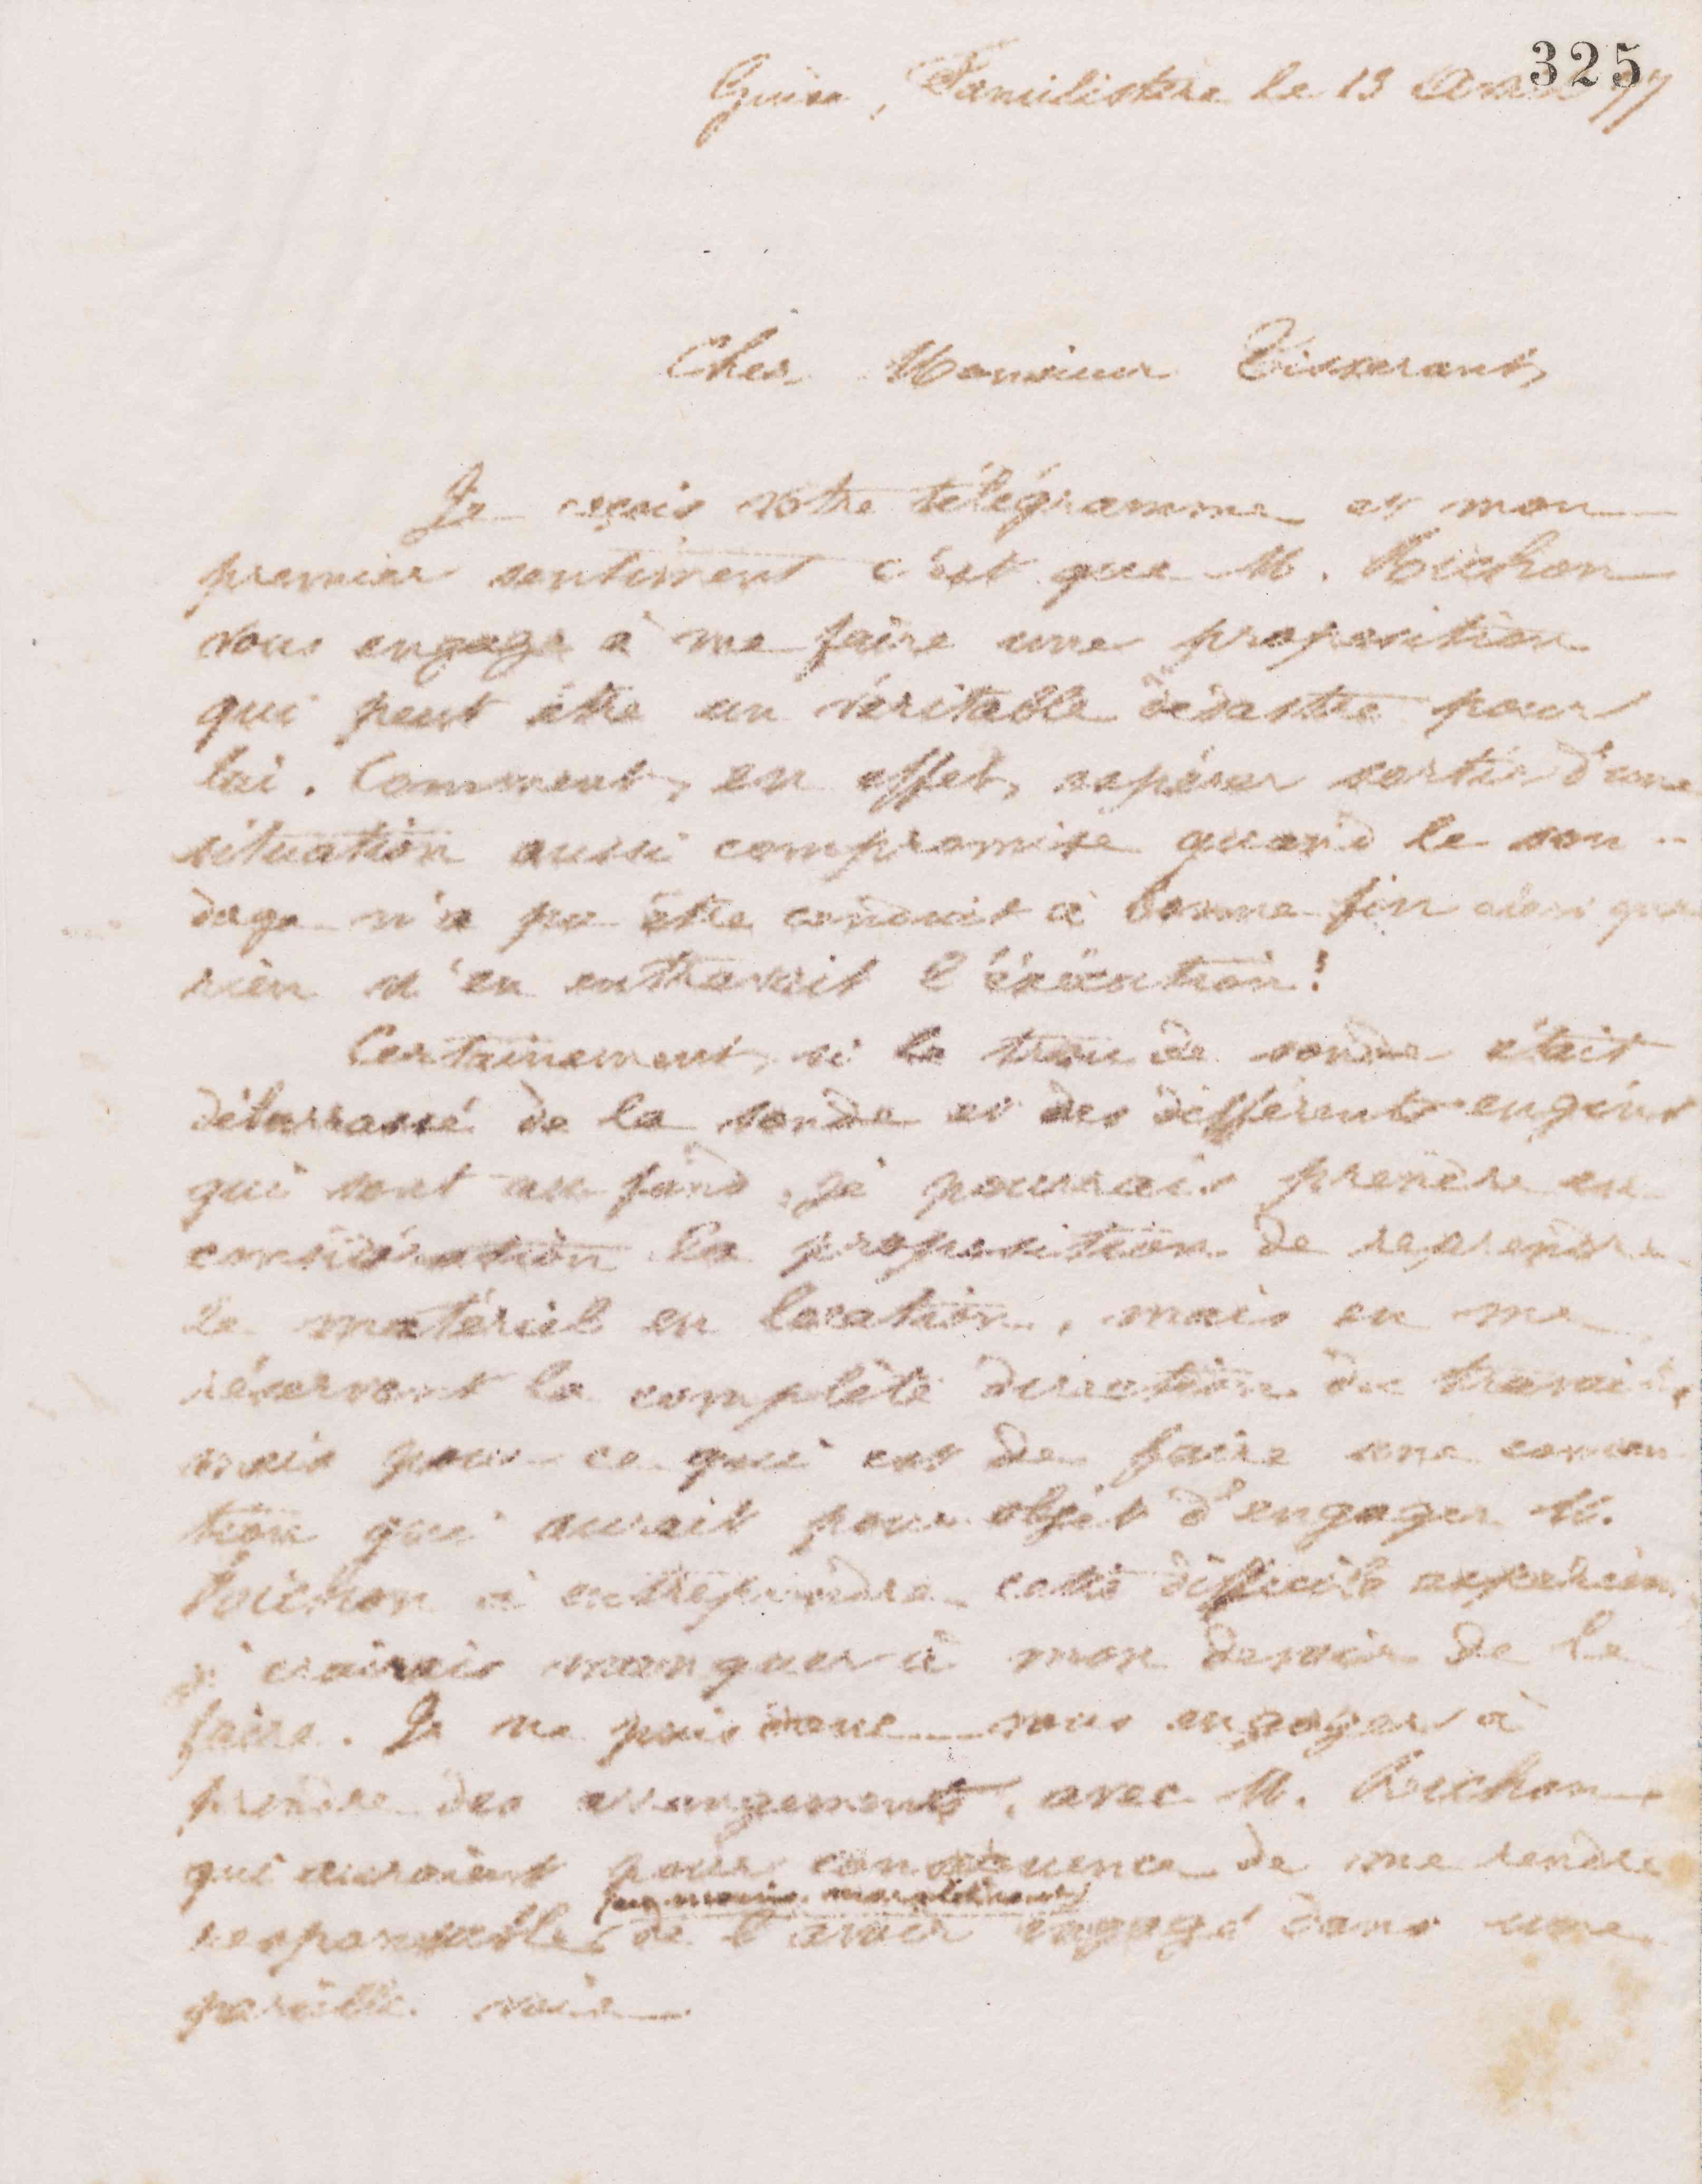 325
Guise, Familistère le 13 Avril 77
Cher Monsieur Tisserant,
Je reçois votre télégramme et mon
premier sentiment c'est que M.
vous engage à me faire une proposition
qui peut être un véritable désastre pour
lui. Comment, en effet, espérer sortir d'une
situation aussi compromise quand le son-
dage n'a pu être conduit à bonne fin alors que
rien n'en entravait l'exécution!
Certainement, si le trou de sonde était
débarrassé de la sonde et des différents engins
qui sont au fond, je pourrais prendre en
considération la proposition de reprendre
le matériel en location, mais en me
réservant la complète direction du travail,
mais pour ce qui est de faire une conven
tion qui aurait pour objet d'engager M.
à entreprendre cette difficile
je croirais manquer à mon devoir de le
faire. Je ne puis donc vous engager à
prendre des arrangements, avec M.
qui auraient pour conséquence de me rendre
(au moins moralement)
responsable de l'avoir engagé dans une
pareille voie